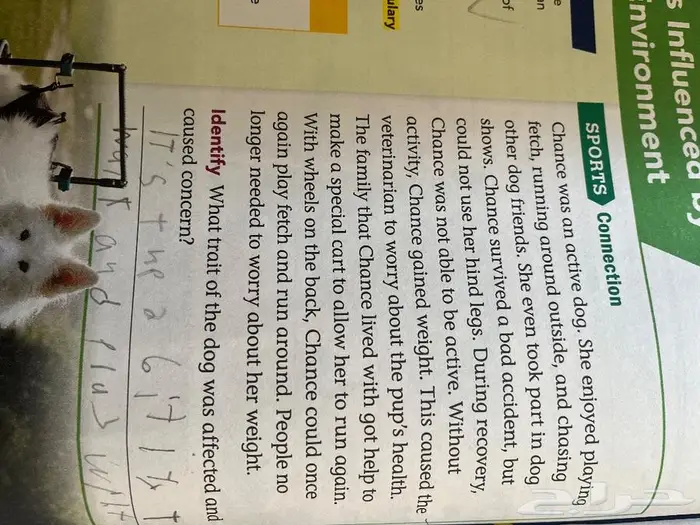 s Influenced by
nvironment
SPORTS Connection
Chance was an active dog. She enjoyed playing
fetch, running around outside, and chasing
other dog friends. She even took part in dog
shows. Chance survived a bad accident, but
could not use her hind legs. During recovery,
Chance was not able to be active. Without
activity, Chance gained weight. This caused the
veterinarian to worry about the pup's health.
The family that Chance lived with got help to
make a special cart to allow her to run again.
With wheels on the back, Chance could once
again play fetch and run around. People no
longer needed to worry about her weight.
Identify What trait of the dog was affected and
caused concern?
It's
and
e
an
of
es
ulary
e
حراج